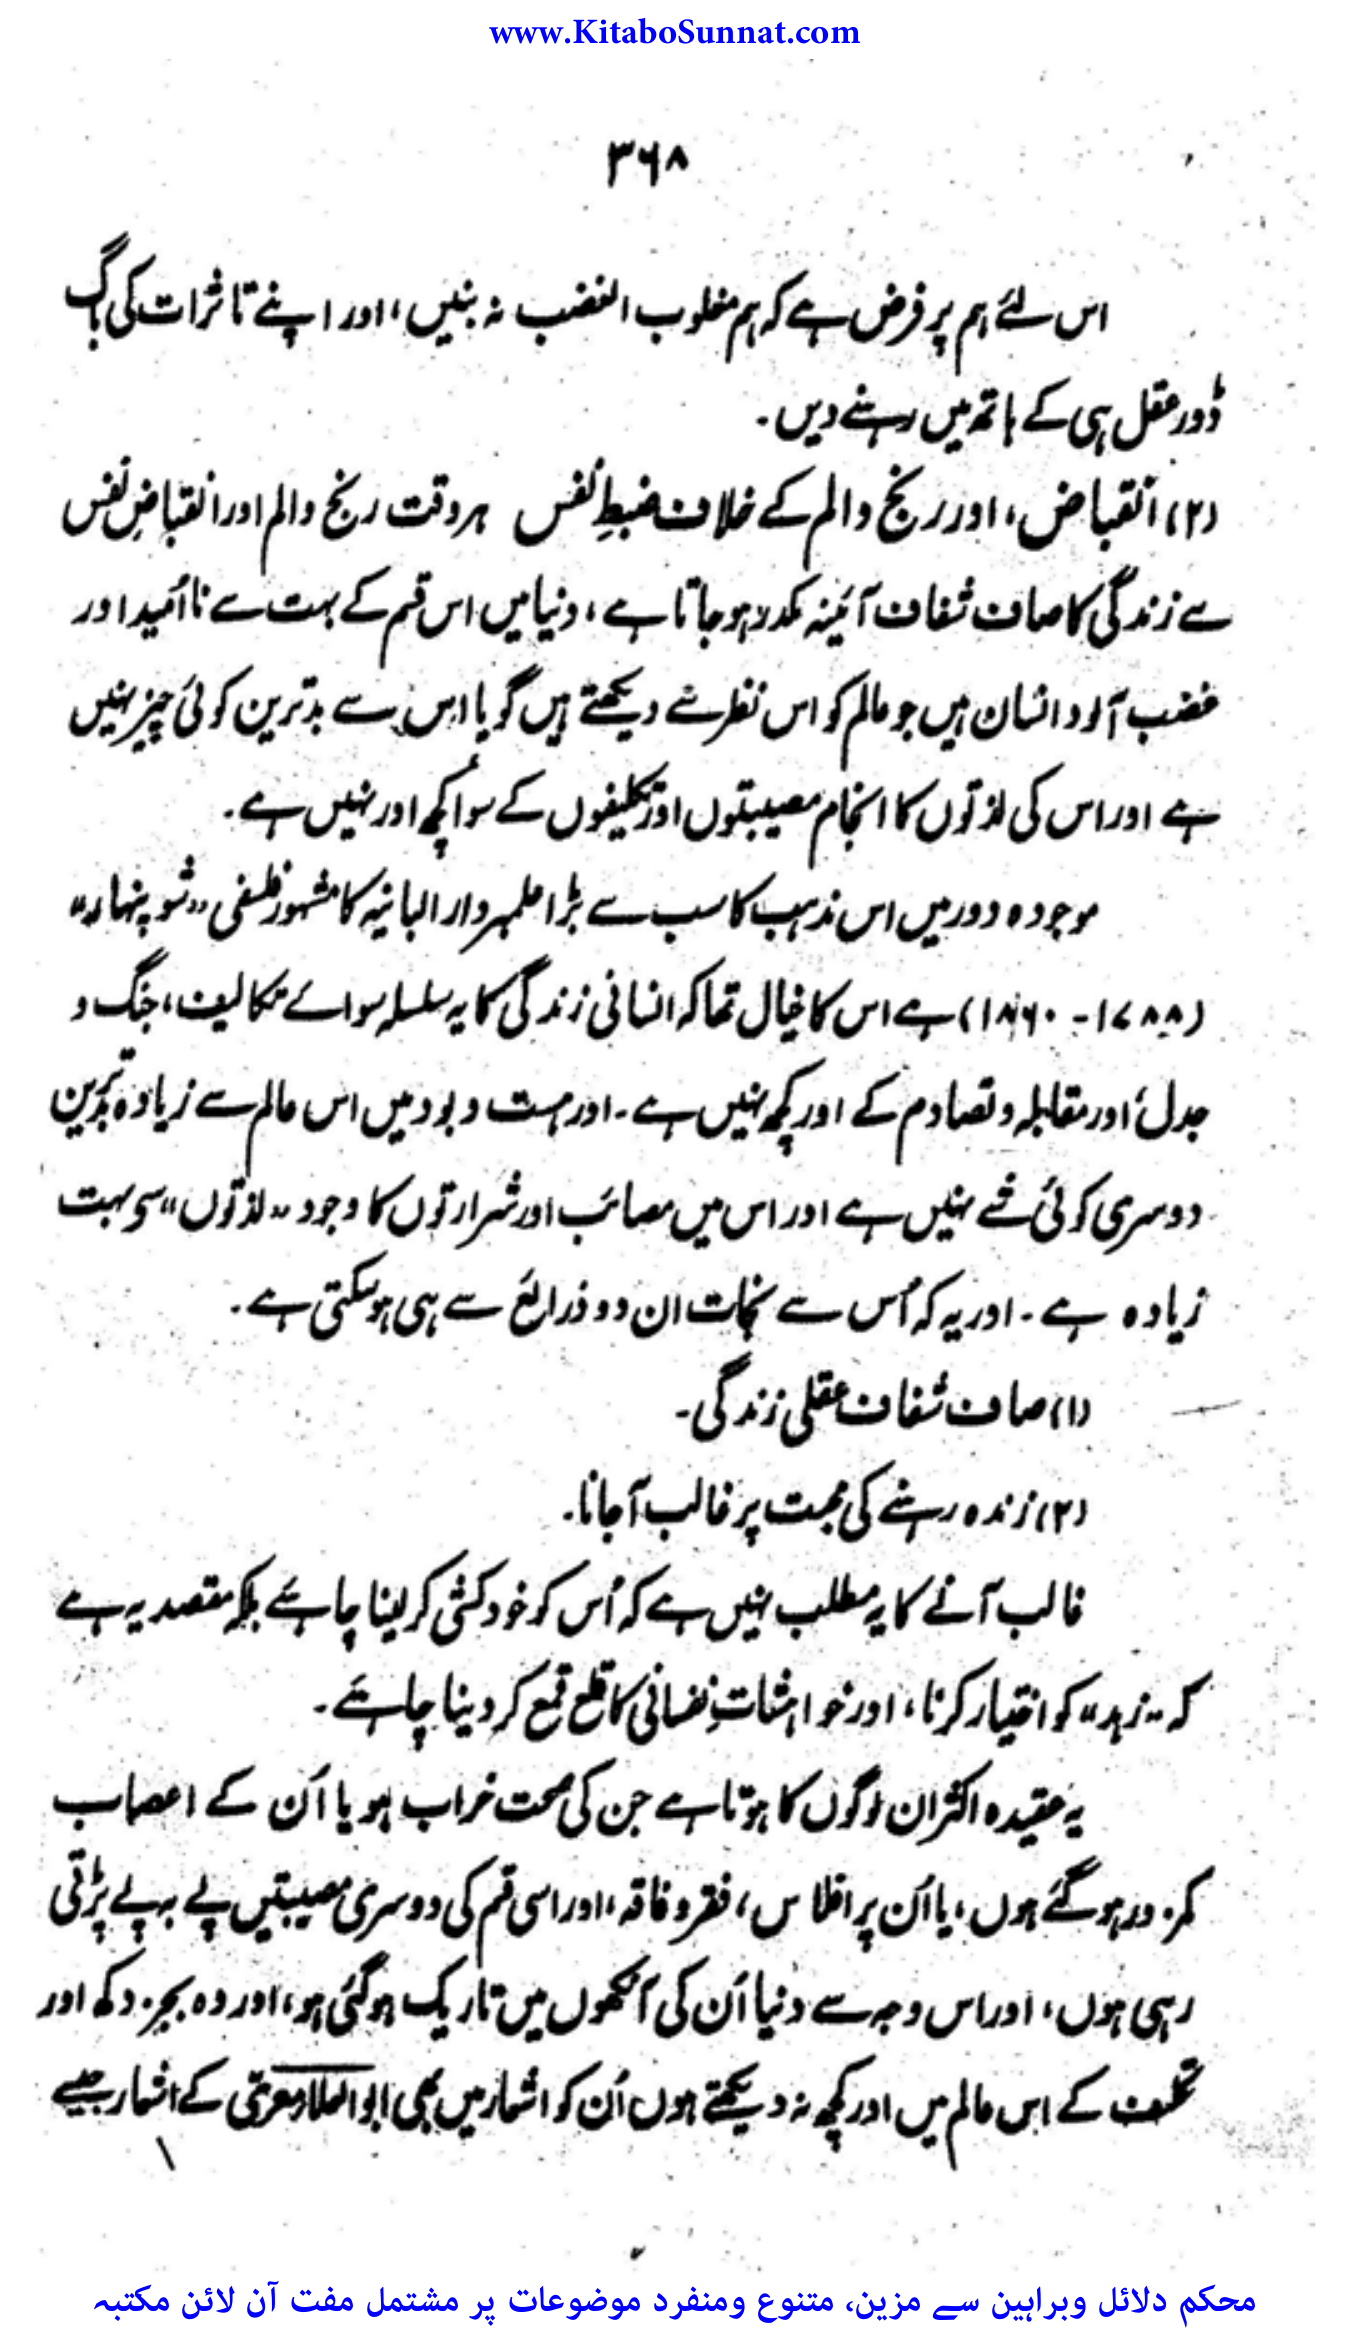 www.KitaboSunnat.com
۳۶۸
اس لئے ہم پر فرض ہے کہ ہم مغلوب الغضب نہ بنیں، اور اپنے تاثرات کی باگ
ڈور عقل ہی کے ہاتھ میں رہنے دیں۔
(۲) انقباض، اور رنج والم کے خلاف ضبطِ نفس ہر وقت رنج والم اور انقباضِ نفس
سے زندگی کا صاف شفاف آئینہ مکدر ہو جاتا ہے، دنیا میں اس قسم کے بہت سے نا اُمید اور
غضب آلود انسان ہیں جو عالم کو اس نظر سے دیکھتے ہیں گویا اس سے بدترین کوئی چیز نہیں
ہے اور اس کی لذتوں کا انجام مصیبتوں اور تکلیفوں کے سوا کچھ اور نہیں ہے۔
موجودہ دور میں اس مذہب کا سب سے بڑا علمبردار البانیہ کا مشہور فلسفی "شوپنہار"
(۱۷۸۸ - ۱۸۶۰) ہے اس کا خیال تھا کہ انسانی زندگی کا یہ سلسلہ سوائے تکالیف، جنگ و
جدل، اور مقابلہ و تصادم کے اور کچھ نہیں ہے۔ اور ہست و بود میں اس عالم سے زیادہ بدترین
دوسری کوئی شے نہیں ہے اور اس میں مصائب اور شرارتوں کا وجود "لذتوں" سی بہت
زیادہ ہے۔ اور یہ کہ اُس سے نجات ان دو ذرائع سے ہی ہو سکتی ہے۔
(۱) صاف شفاف عقلی زندگی۔
(۲) زندہ رہنے کی محبت پر غالب آجانا۔
غالب آنے کا یہ مطلب نہیں ہے کہ اُس کو خودکشی کر لینا چاہئے بلکہ مقصد یہ ہے
کہ "زہد" کو اختیار کرنا، اور خواہشاتِ نفسانی کا قلع قمع کر دینا چاہئے۔
یہ عقیدہ اکثر ان لوگوں کا ہوتا ہے جن کی صحت خراب ہو یا اُن کے اعصاب
کمزور ہو گئے ہوں، یا اُن پر افلاس، فقر و فاقہ، اور اسی قسم کی دوسری مصیبتیں پے بہ پے پڑتی
رہی ہوں، اور اس وجہ سے دنیا اُن کی آنکھوں میں تاریک ہو گئی ہو، اور وہ بجز دکھ اور
تکلیف کے اس عالم میں اور کچھ نہ دیکھتے ہوں اُن کو اشعار میں بھی ابوالعلاء معری کے اشعار جیسے
محکم دلائل وبراہین سے مزین، متنوع ومنفرد موضوعات پر مشتمل مفت آن لائن مکتبہ